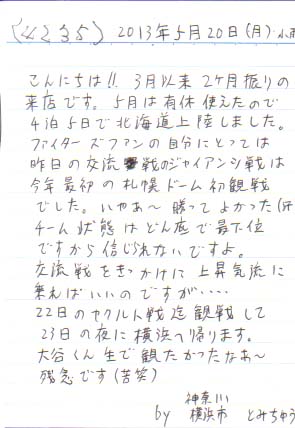 (4235) 2013年5月20日(月)・小雨
こんにちは!! 3月以来 2ヶ月振りの
来店です。5月は有休使えたので
4泊5日で北海道上陸しました。
ファイターズファンの自分にとっては
昨日の交流戦のジャイアンツ戦は
今年最初の札幌ドーム初観戦
でした。いやぁ〜勝ってよかった
チーム状態はどん底で最下位
ですから信じられないですよ。
交流戦をきっかけに上昇気流に
乗ればいいのですが・・・・
22日のヤクルト戦迄観戦して
23日の夜に横浜へ帰ります。
大谷くん生で観たかったなあ〜
残念です(苦笑)
神奈川
by 横浜市 とみちゅう